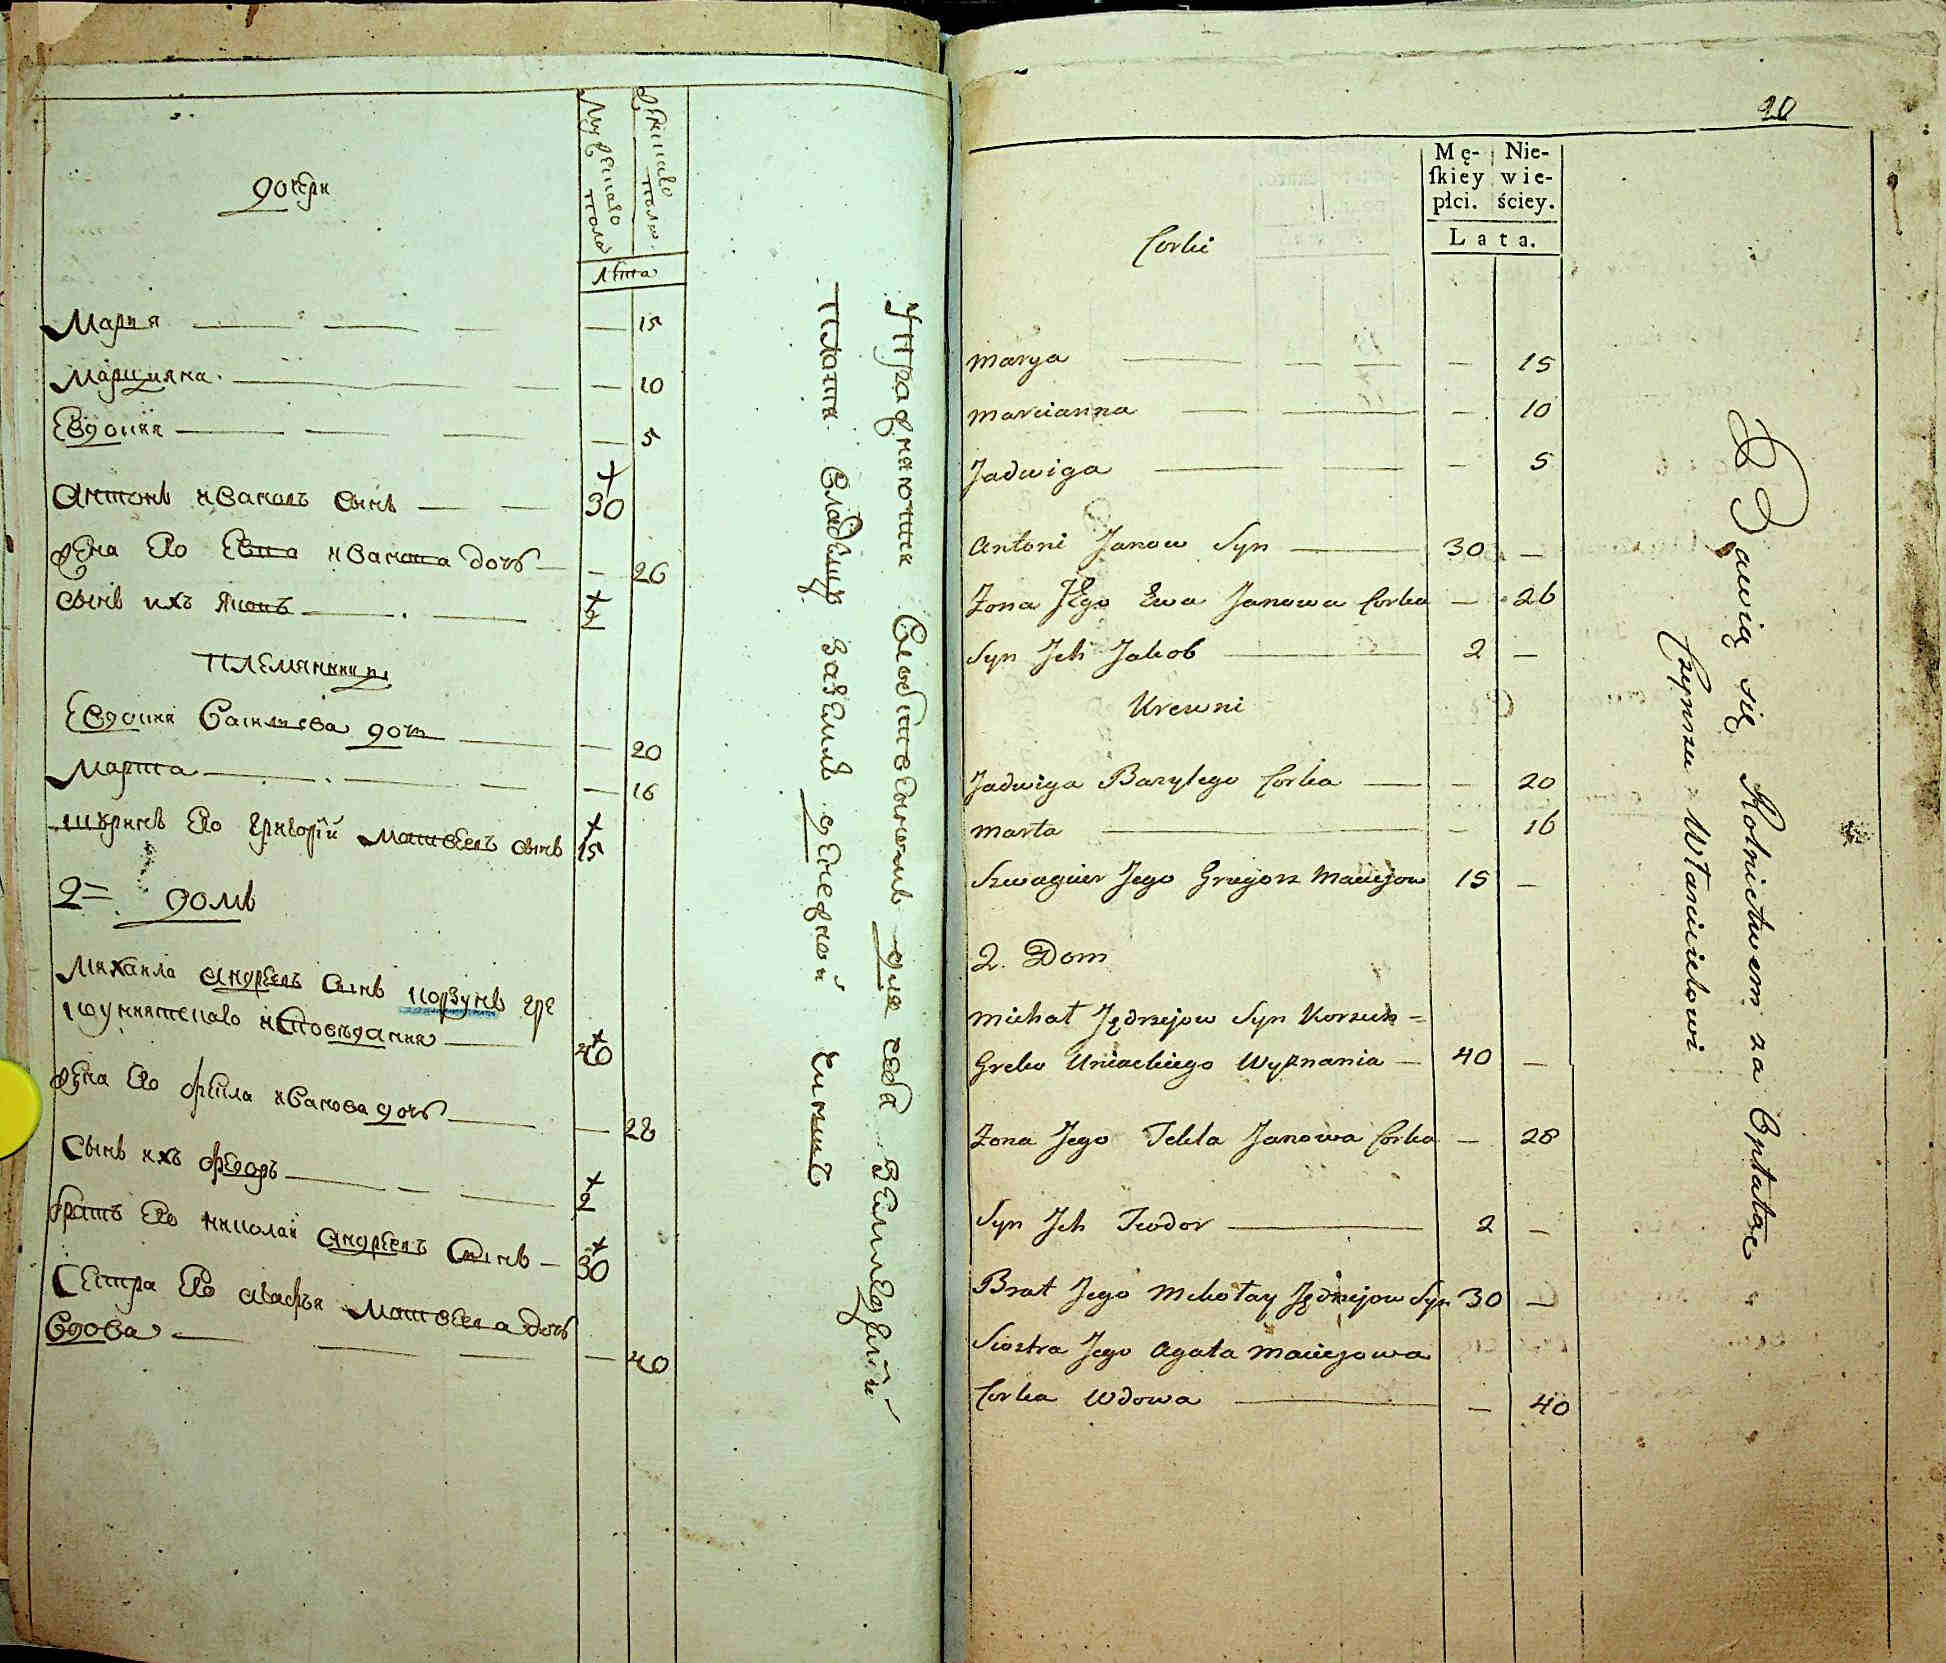 дочери
мужескаго пола
женскаго полу.
Лета
Мария — — — — 15
Марцияна. — — — 10
Евдокия — — — — 5
Антонъ Ивановъ сынъ — — 30
жена его Евва Иванова дочь — — 26
сынъ ихъ Яковъ — . — 2
племянницы
Евдокия Василиева дочь — — 20
Марта — . — — — 16
шуринъ его Григорїй Матвеевъ сынъ 15
2= домъ
Михаила Андреевъ сынъ Корзунъ гре
коуниятскаго исповѣдания — 40
жена его Фекла Иванова дочь — — 28
Сынъ ихъ Федоръ — — — 2
братъ его Николай Андреевъ Сынъ — 30
Сестра его Агафья Матвеева дочь
вдова — — — — 40
Упражняются хлебопашествомъ для себя
платя владельцу за землю денежной чиншъ
20
Mę-
ſkiey
płci.
Nie-
wie-
ściey.
Lata.
Corki
Marya — — — — 15
Marcianna — — — 10
Jadwiga — — — 5
Antoni Janow Syn — 30 —
Zona Jego Ewa Janowa Corka — 26
Syn Ich Jakob — 2 —
Krewni
Jadwiga Bazylego Corka — — 20
Marta — — 16
Szwagier Jego Grzegorz Maciejow 15 —
2. Dom
Michał Jędrzejow Syn Korzun =
Greko Uniackiego Wyznania — 40 —
Zona Jego Tekla Janowa Corka — 28
Syn Ich Teodor — 2 —
Brat Jego Mikołay Jędrzejow Syn 30 —
Siostra Jego Agata Maciejowa
Corka Wdowa — — 40
Bawią się Rolnictwem za Opłatą
Czynszu Włascicielowi